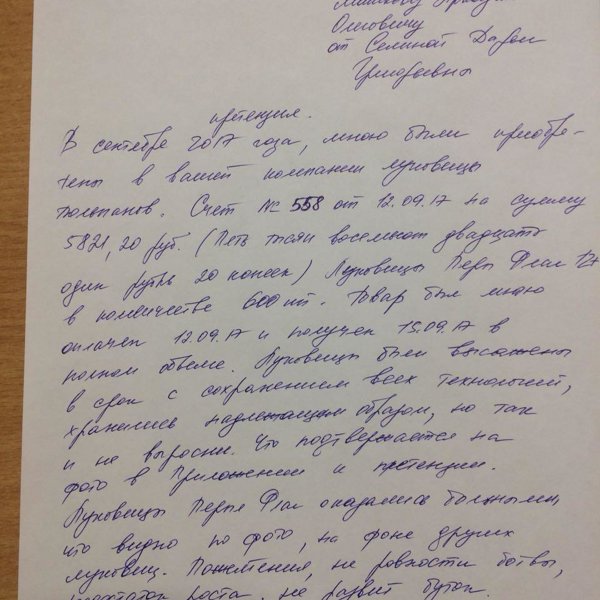 Олеговичу
от Селиной Дарьи
Григорьевны
претензия.
В сентябре 2017 года, мною были приобре-
тены в вашей компании луковицы
тюльпанов. Счет № 558 от 12.09.17 на сумму
5821,20 руб. (Пять тысяч восемьсот двадцать
один рубль 20 копеек) Луковицы Перпл Флаг
в количестве 600 шт. Товар был мною
оплачен 12.09.17 и получен 15.09.17 в
полном объеме. Луковицы были высажены
в срок с сохранением всех технологий,
хранились надлежащим образом, но так
и не выросли. Что подтверждается на
фото в Приложении к претензии.
Луковицы Перпл Флаг оказались больными,
что видно по фото, на фоне других
луковиц. Пожелтения, не ровности ботвы,
недостаток роста, не развит бутон.